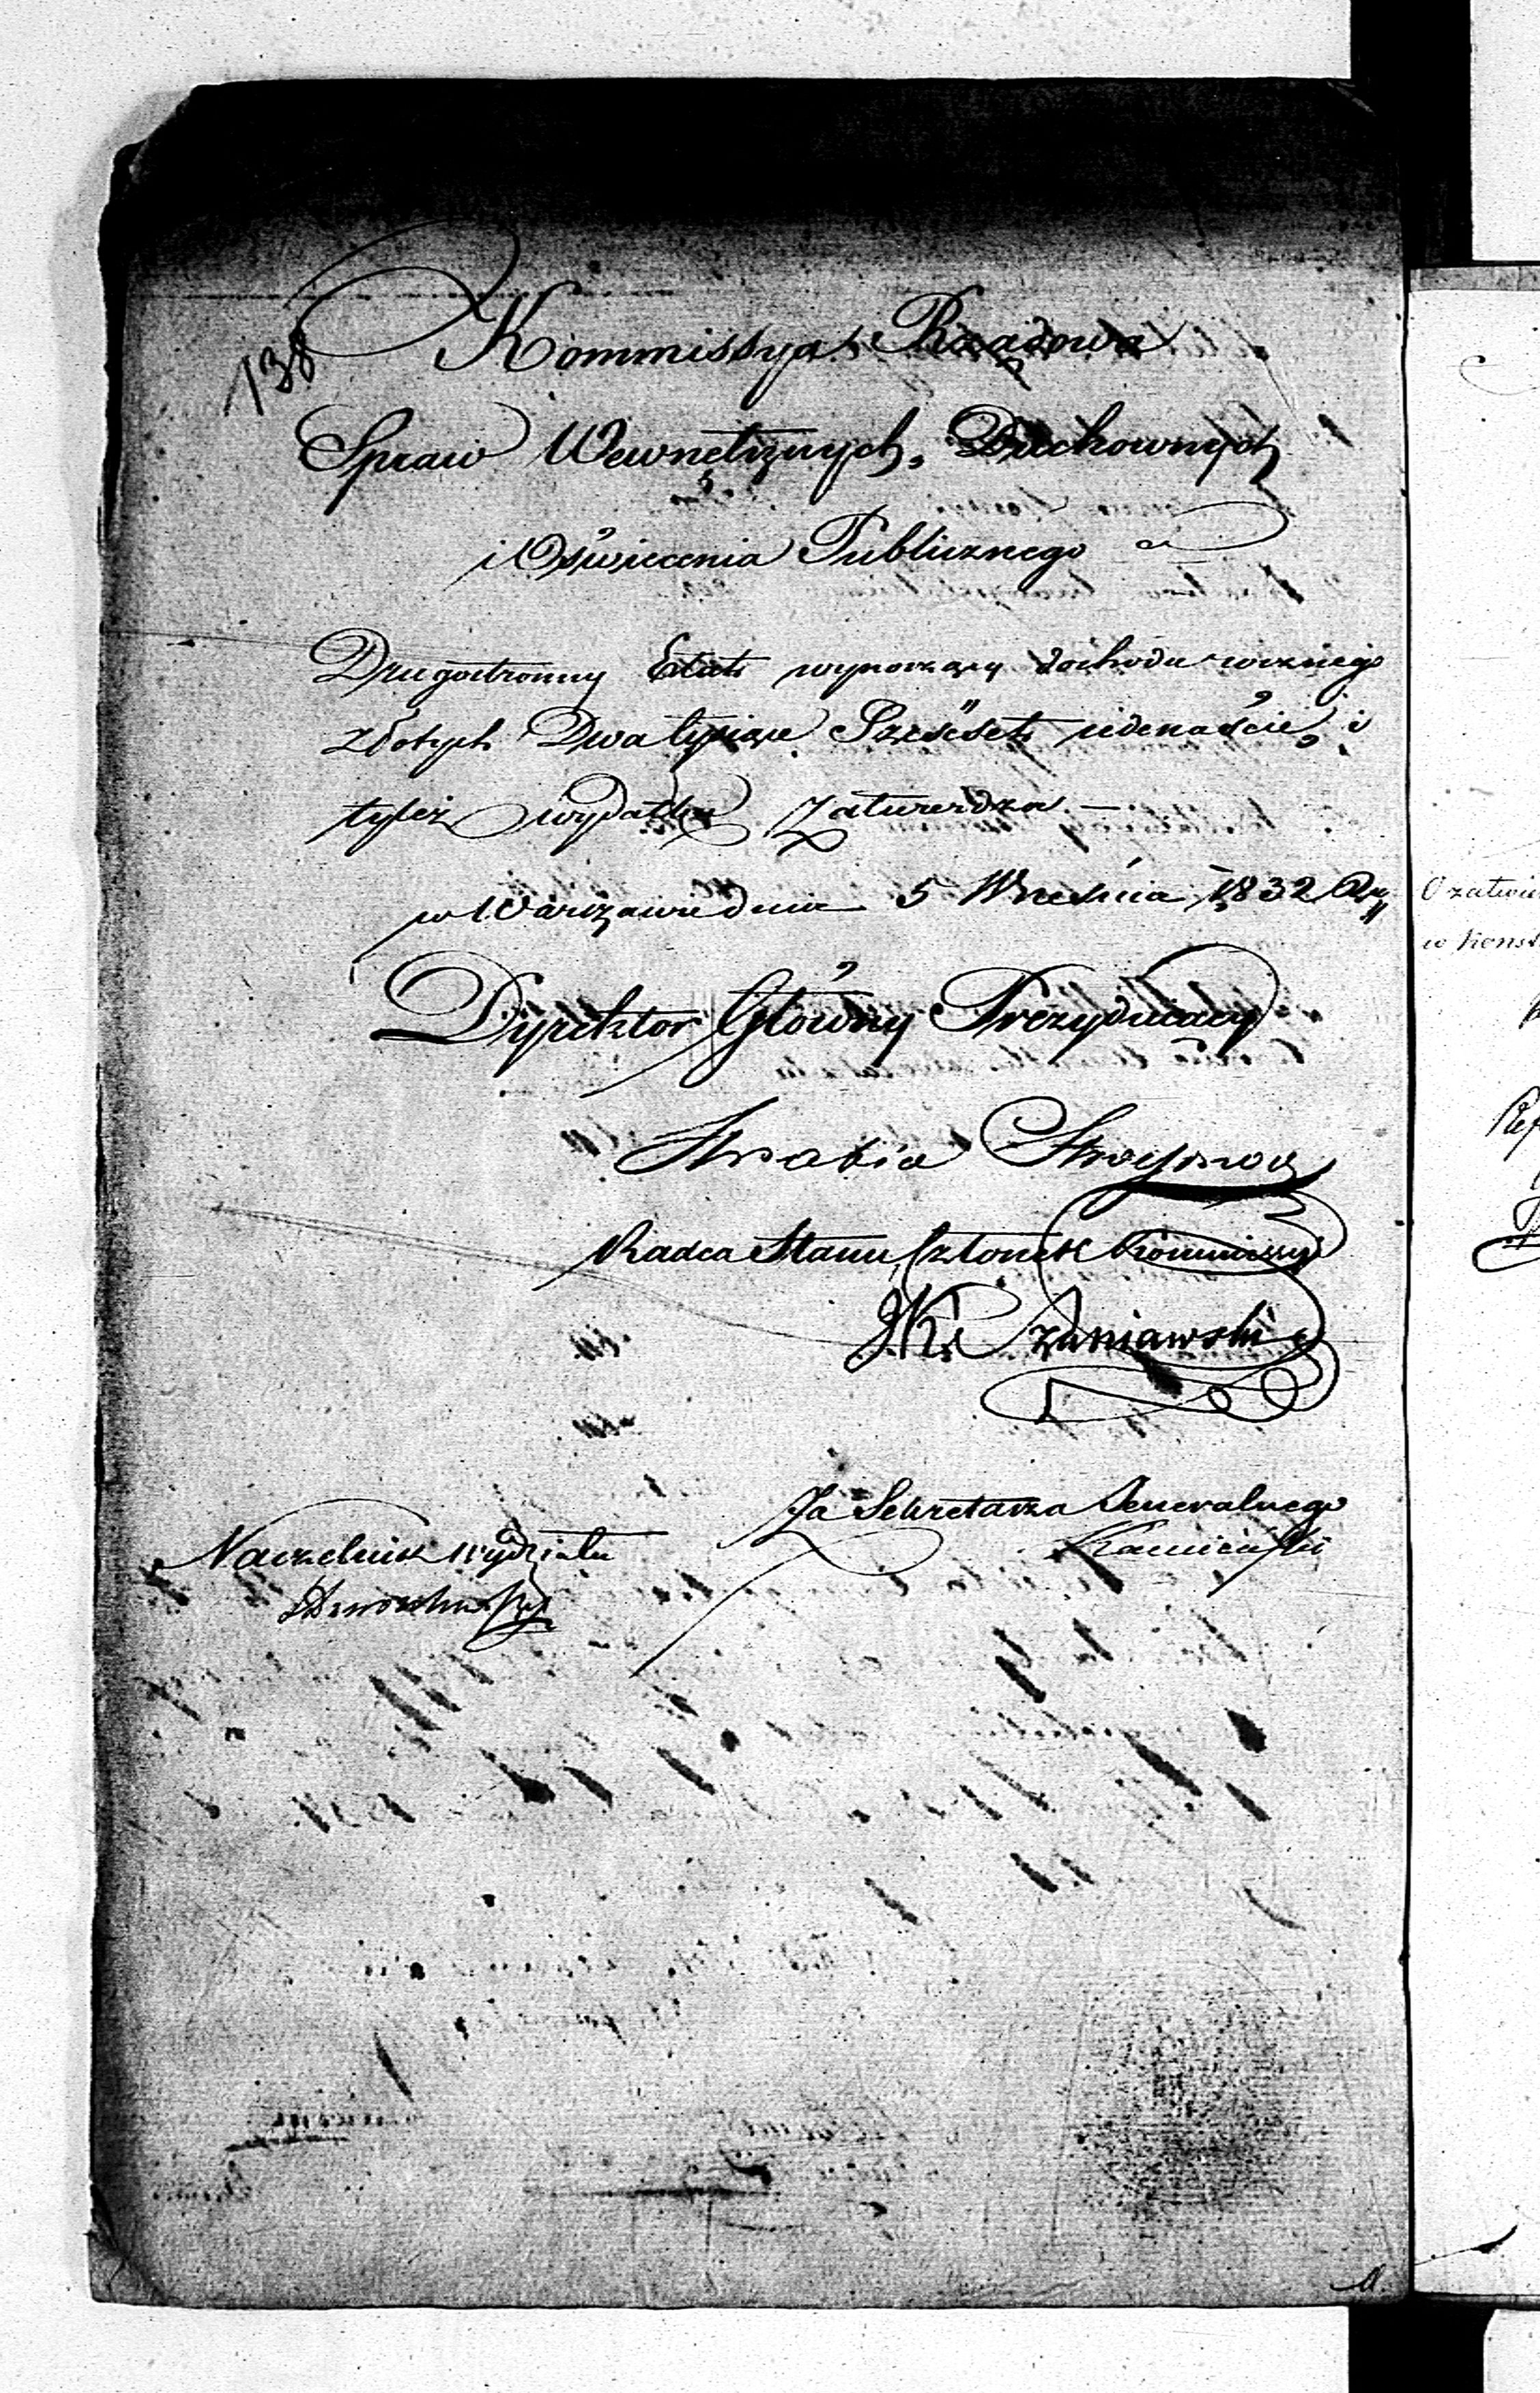 138
Kommissya Rządowa
Spraw Wewnętrznych, Duchownych
i Oświecenia Publicznego
Drugostronny Etat wynoszący dochodu rocznego
złotych Dwa tysiące Sześćset jedenaście, i
tyleż wydatku zatwierdza —
w Warszawie dnia 5 Września 1832 R.
Dyrektor Główny Prezydujący
Hrabia Strogonow
Radca Stanu, Członek Kommissyi
J.K. Szaniawski
Za Sekretarza Jeneralnego
Naczelnik Wydziału
O zatwie
w Konst